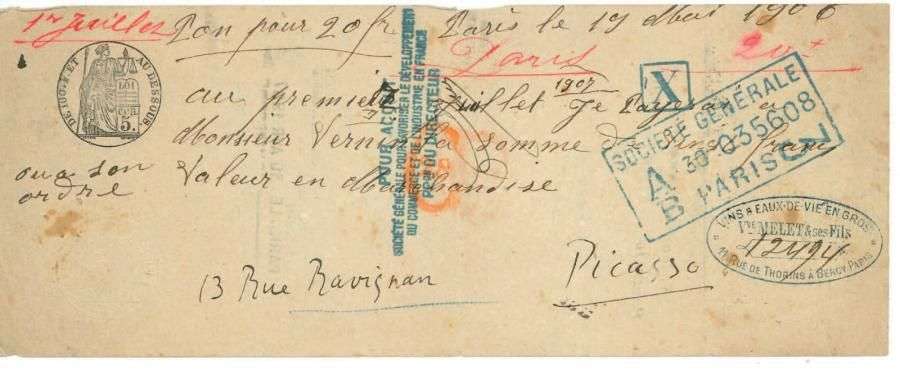 1er Juillet Bon pour 20 fr Paris le 19 Mai 1906
Paris 20 f
1907
au premier Juillet Je Payerai a
Monsieur Vernon la somme de vingt franc
ou a son
ordre
Valeur en Marchandise
13 Rue Ravignan Picasso
DE 100 F. ET AU DESSOUS
LOI
5c.
POUR ACQUIT
SOCIÉTÉ GÉNÉRALE POUR FAVORISER LE DÉVELOPPEMENT
DU COMMERCE ET DE L'INDUSTRIE EN FRANCE
PPON DU DIRECTEUR
X
SOCIÉTÉ GÉNÉRALE
A 30 035608
B PARIS
VINS & EAUX-DE-VIE EN GROS
Vve MELET & ses Fils
12494
11, RUE DE THORINS À BERCY-PARIS